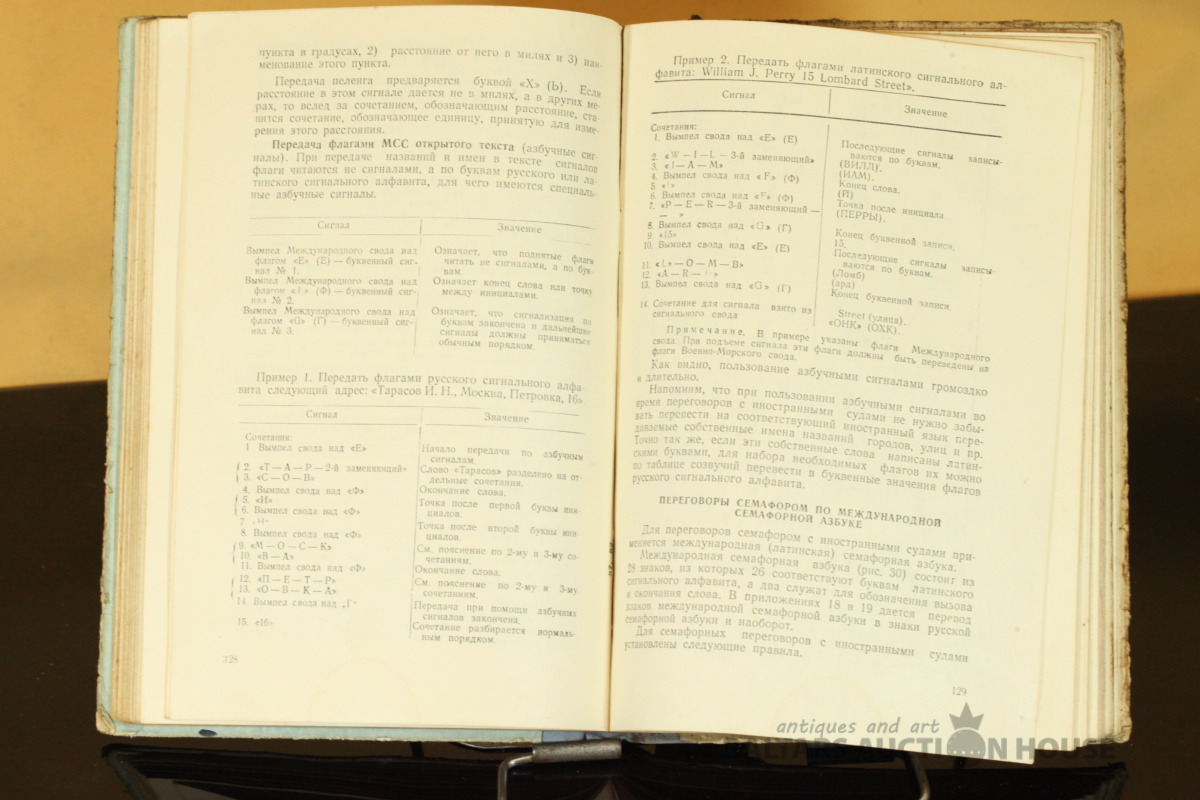 пункта в градусах, 2) расстояние от него в милях и 3) наи-
менование этого пункта.
Передача пеленга предваряется буквой «Х» (Ь). Если
расстояние в этом сигнале дается не в милях, а в других ме-
рах, то вслед за сочетанием, обозначающим расстояние, ста-
вится сочетание, обозначающее единицу, принятую для изме-
рения этого расстояния.
Передача флагами МСС открытого текста (азбучные сиг-
налы). При передаче названий и имен в тексте сигналов
флаги читаются не сигналами, а по буквам русского или ла-
тинского сигнального алфавита, для чего имеются специаль-
ные азбучные сигналы.
Сигнал Значение
Вымпел Международного свода над
флагом «Е» (Е) — буквенный сиг-
нал № 1.
Означает, что поднятые флаги
читать не сигналами, а по бук-
вам.
Вымпел Международного свода над
флагом (Ф) — буквенный сиг-
нал № 2.
Означает конец слова или точку
между инициалами.
Вымпел Международного свода над
флагом «G» (Г) — буквенный сиг-
нал № 3.
Означает, что сигнализация по
буквам закончена и дальнейшие
сигналы должны приниматься
обычным порядком.
Пример 1. Передать флагами русского сигнального алфа-
вита следующий адрес: «Тарасов И. Н., Москва, Петровка, 16»
Сигнал Значение
Сочетания:
1 Вымпел свода над «Е»
Начало передачи по азбучным
сигналам.
2. «Т — А — Р — 2-й заменяющий»
3. «С — О — В»
Слово «Тарасов» разделено на от-
дельные сочетания.
4. Вымпел свода над «Ф»
Окончание слова.
5. «И»
6. Вымпел свода над «Ф»
Точка после первой буквы ини-
циалов.
7
8. Вымпел свода над «Ф»
Точка после второй буквы ини-
циалов.
9. «М — О — С — К»
10. «В — А»
См. пояснение по 2-му и 3-му со-
четаниям.
11. Вымпел свода над «Ф»
Окончание слова.
12. «П — Е — Т — Р»
13. «О — В — К — А»
См. пояснение по 2-му и 3-му
сочетаниям.
14. Вымпел свода над „Г“
Передача при помощи азбучных
сигналов закончена.
15. «16»
Сочетание разбирается нормаль-
ным порядком.
128
Пример 2. Передать флагами латинского сигнального ал-
фавита: William J. Perry 15 Lombard Street».
Сигнал Значение
Сочетания:
1. Вымпел свода над «Е» (Е)
Последующие сигналы записы-
ваются по буквам.
2. «W — I — L — 3-й заменяющий»
(ВИЛЛ).
3. «I — A — M»
(ИАМ).
4. Вымпел свода над «F» (Ф)
Конец слова.
5
(Й)
6. Вымпел свода над «F» (Ф)
Точка после инициала
7. «P — E — R — 3-й заменяющий —
— »
(ПЕРРЫ).
8. Вымпел свода над «G» (Г)
Конец буквенной записи.
9. «15»
15.
10. Вымпел свода над «Е» (Е)
Последующие сигналы записы-
ваются по буквам.
11. «L — O — M — B»
(Ломб)
12. «A — R —
(ард)
13. Вымпел свода над «G» (Г)
Конец буквенной записи.
14. Сочетание для сигнала взято из
сигнального свода
Street (улица).
«ОНК» (ОХК).
Примечание. В примере указаны флаги Международного
свода. При подъеме сигнала эти флаги должны быть переведены на
флаги Военно-Морского свода.
Как видно, пользование азбучными сигналами громоздко
и длительно.
Напомним, что при пользовании азбучными сигналами во
время переговоров с иностранными судами не нужно забы-
вать перевести на соответствующий иностранный язык пере-
даваемые собственные имена названий городов, улиц и пр.
Точно так же, если эти собственные слова написаны латин-
скими буквами, для набора необходимых флагов их можно
по таблице созвучий перевести в буквенные значения флагов
русского сигнального алфавита.
ПЕРЕГОВОРЫ СЕМАФОРОМ ПО МЕЖДУНАРОДНОЙ
СЕМАФОРНОЙ АЗБУКЕ
Для переговоров семафором с иностранными судами при-
меняется международная (латинская) семафорная азбука.
Международная семафорная азбука (рис. 30) состоит из
28 знаков, из которых 26 соответствуют буквам латинского
сигнального алфавита, а два служат для обозначения вызова
и окончания слова. В приложениях 18 и 19 дается перевод
знаков международной семафорной азбуки в знаки русской
семафорной азбуки и наоборот.
Для семафорных переговоров с иностранными судами
установлены следующие правила.
129
antiques and art
AUCTION HOUSE